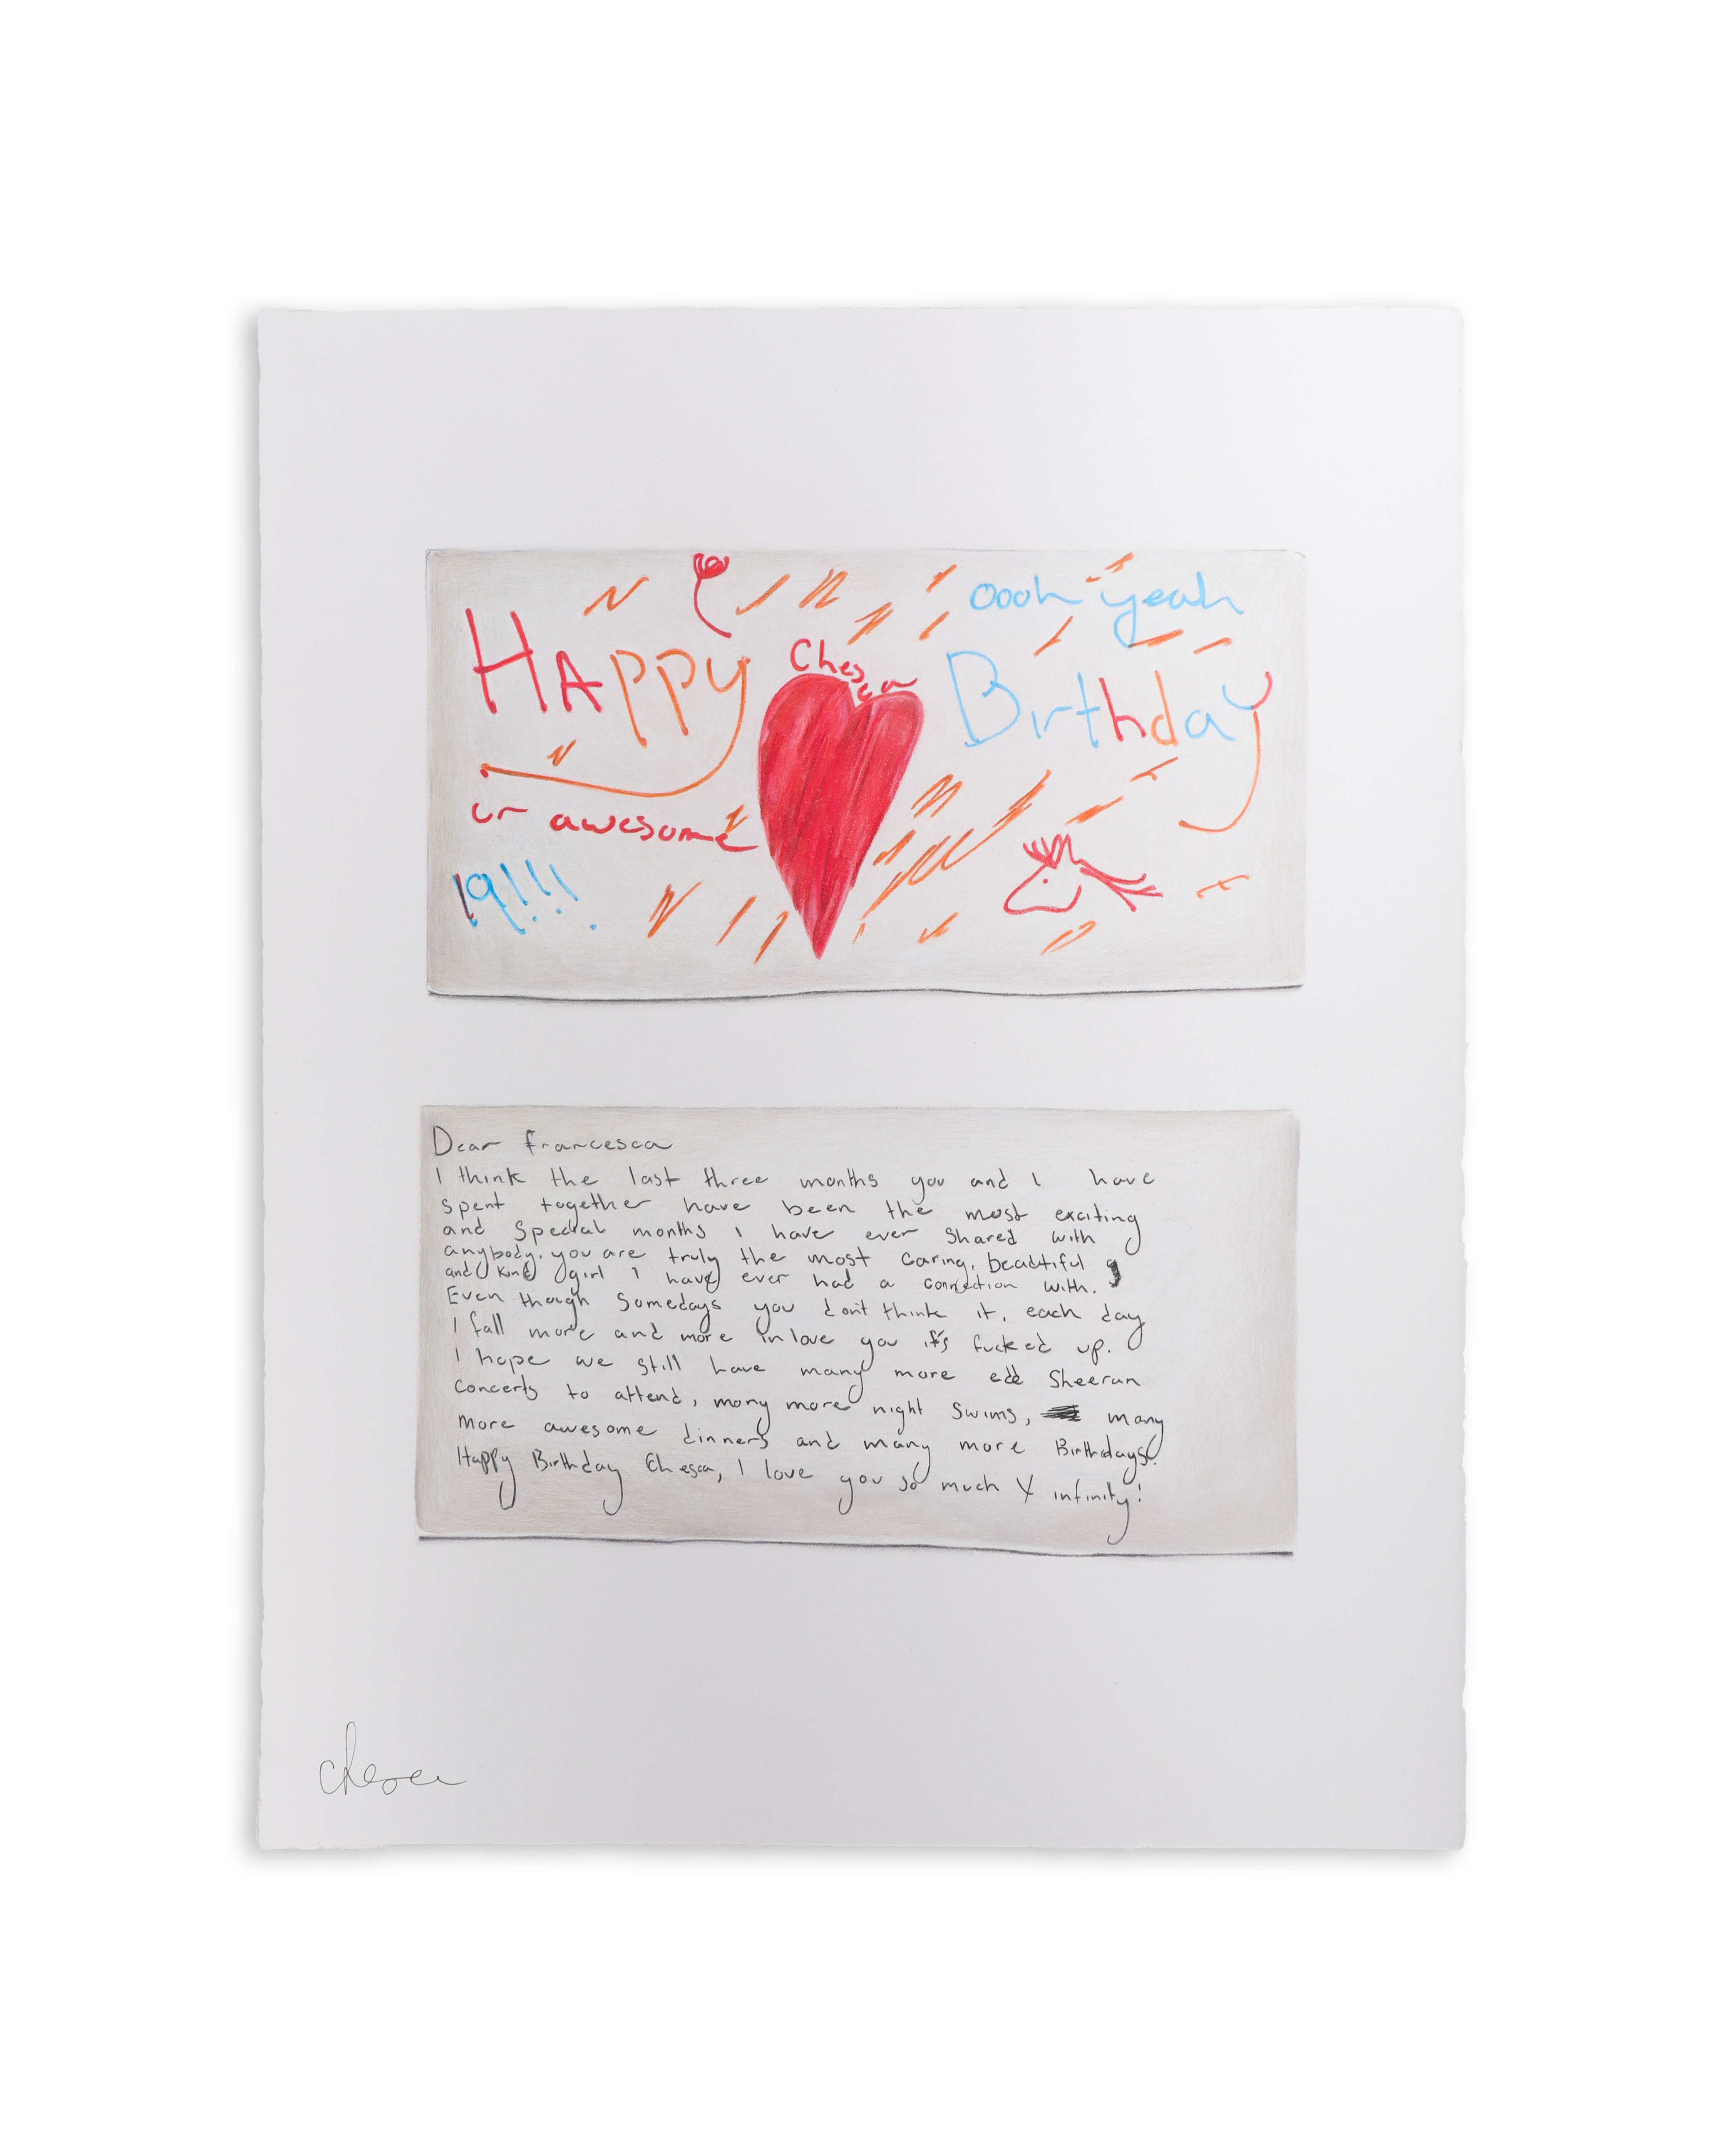 Oooh yeah
HAppy Chesca Birthday
ur awesome
19!!!
Dear francesca
I think the last three months you and I have
spent together have been the most exciting
and special months I have ever shared with
anybody. you are truly the most caring, beautiful
and kind girl I have ever had a connection with.
Even though somedays you don't think it, each day
I fall more and more in love you it's fucked up.
I hope we still have many more edd Sheeran
concerts to attend, many more night swims, many
more awesome dinners and many more Birthdays!
Happy Birthday Chesca, I love you so much X infinity!
chesca